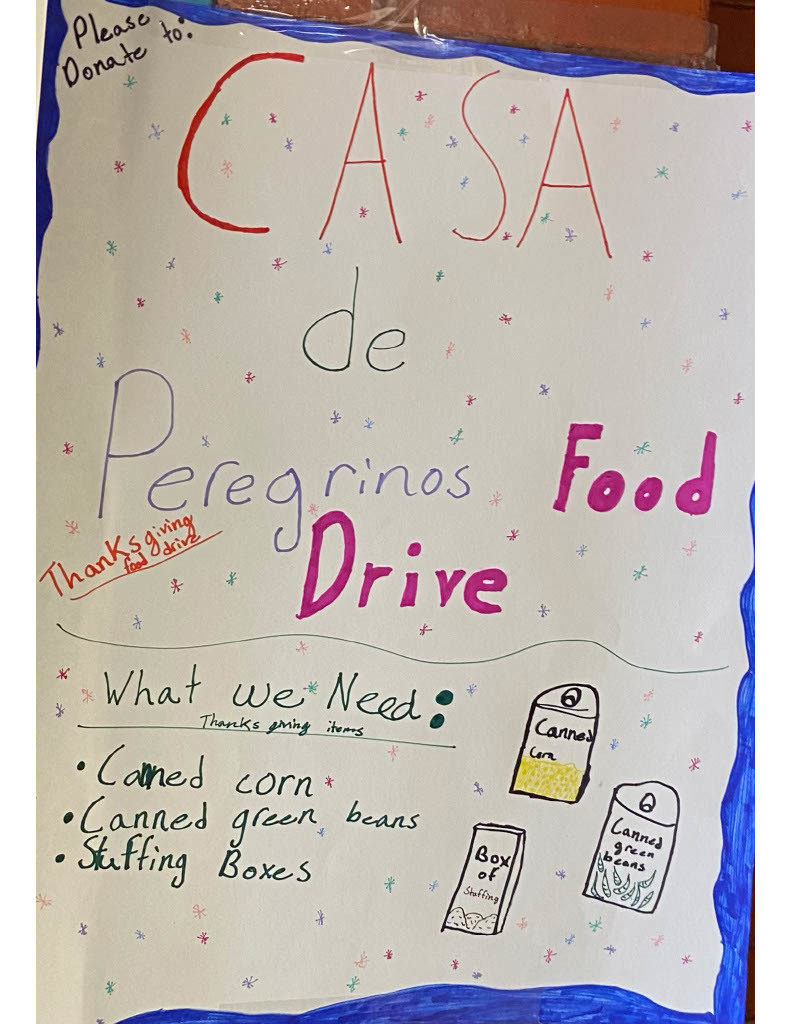 Please
Donate to:
CASA
de
Peregrinos Food
Drive
Thanksgiving
food drive
What we Need:
Thanks giving items
• Canned corn
• Canned green beans
• Stuffing Boxes
Canned
Corn
Canned
green
beans
Box
of
Stuffing